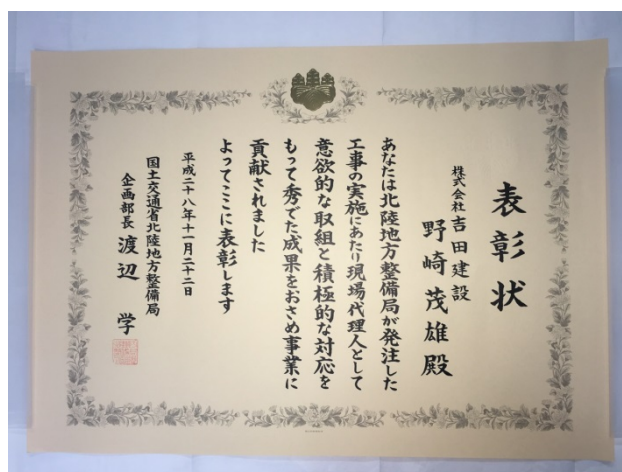 表彰状
株式会社吉田建設
野崎茂雄殿
あなたは北陸地方整備局が発注した
工事の実施にあたり現場代理人として
意欲的な取組と積極的な対応を
もって秀でた成果をおさめ事業に
貢献されました
よってここに表彰します
平成二十八年十一月二十二日
国土交通省北陸地方整備局
企画部長 渡辺 学